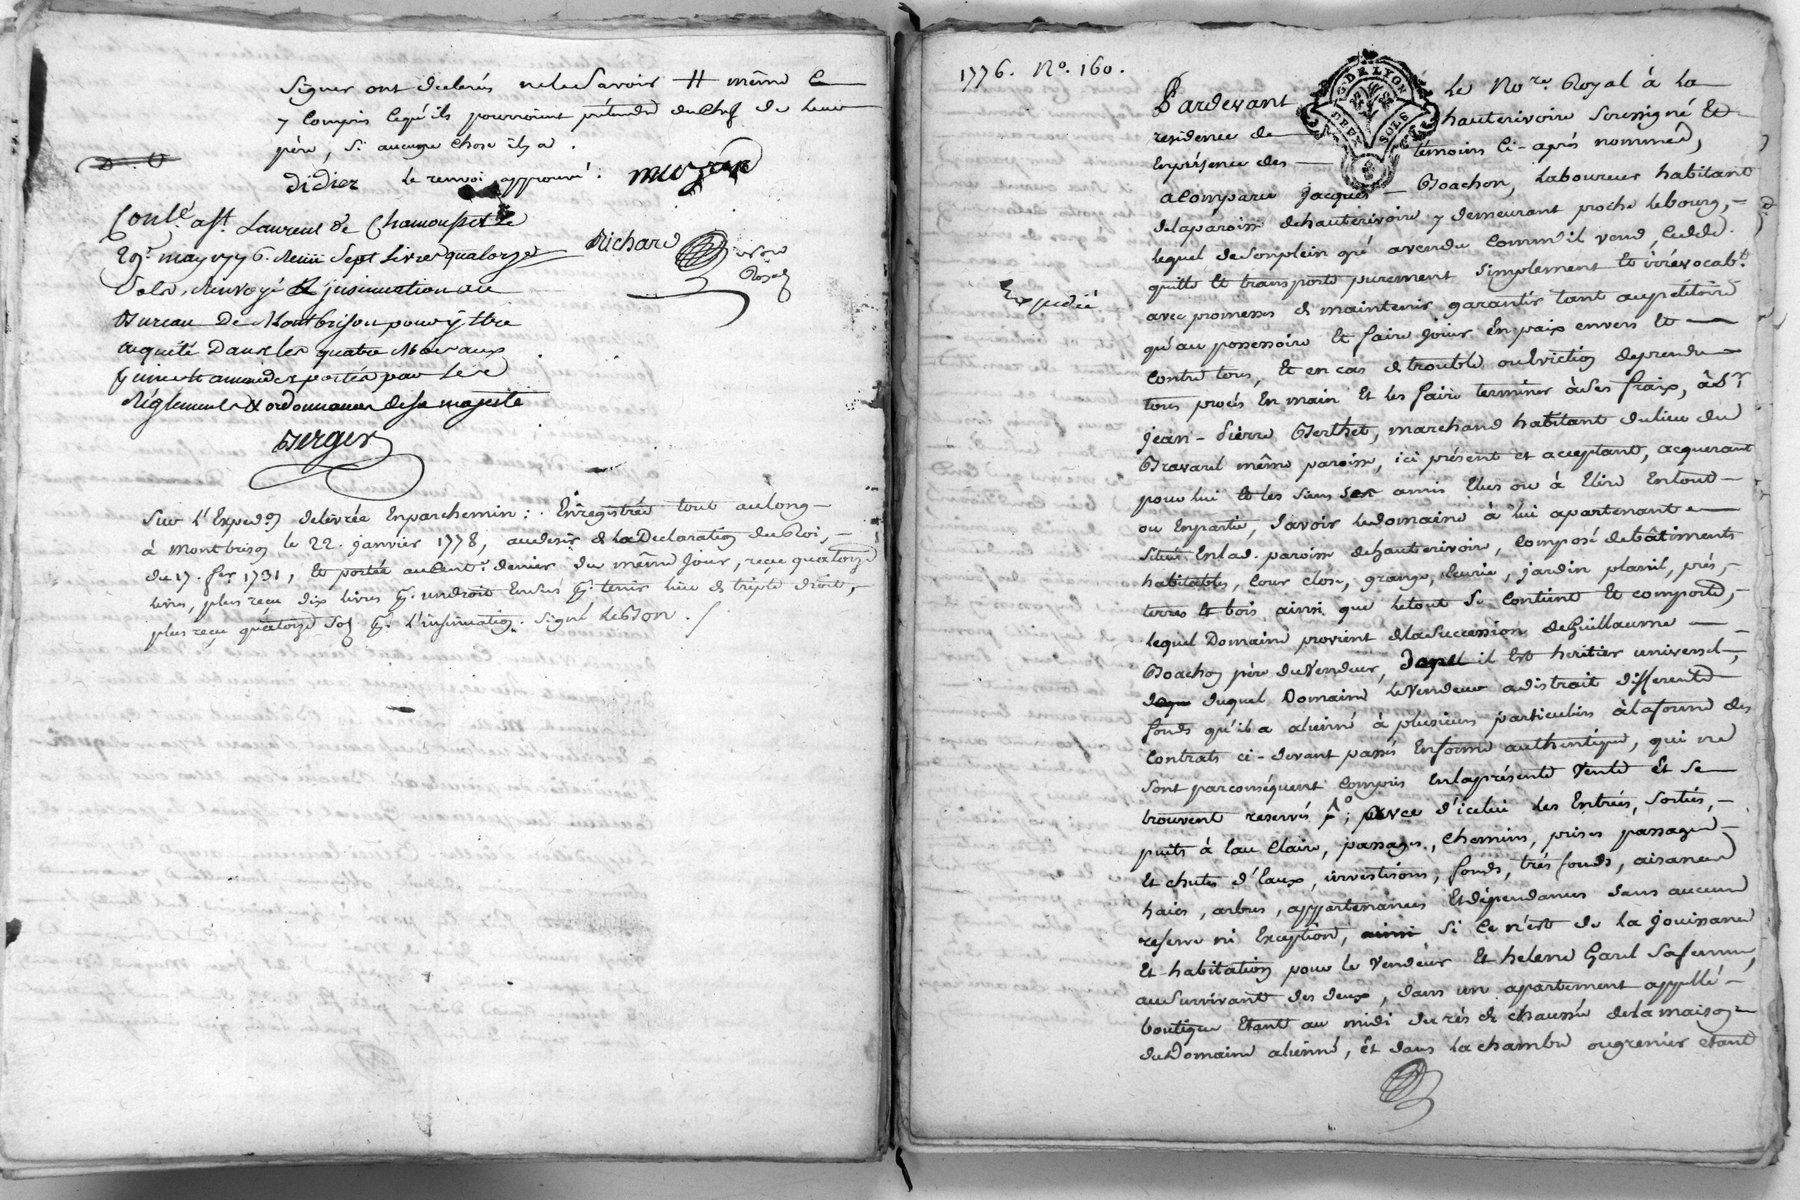 signer ont declarés ne le savoir # même Ce
y Compris Ce qu'ils pourroient prétendre du Chef de leur
père, si aucune chose il y a.
didier le renvoi approuvé :
Conlé. à St. Laurent de Chamousset le
29e. may 1776. Reçu Sept livres quatorze
Sols, Renvoyé à l'insinuation au
Bureau De Montbrison pour y être
acquité Dans les quatre Mois aux
peines & amendes portées par les
Réglements & ordonnances de sa majesté
Berger
Richard
nore
Royal
Sur l'Exped.on delivrée En parchemin : Enregistrée tout au long
à Montbrison le 22. janvier 1778, au desir de la Declaration du Roi,
du 17. fer 1731, Et portée au Cent.e denier du même Jour, reçu quatorze
livres, plus reçu dix livres pr. un droit En sus pr. tenir lieu de triple droit,
plus reçu quatorze sols pr. l'insinuation. Signé LeBon ./
1776. No. 160.
G. DE LYON
DEUX SOLS
Pardevant le Nore. Royal à la
residence de hauterivoire Soussigné Et
En présence des témoins Ci-après nommés,
a Comparu Jacques Boachon, Laboureur habitant
de la paroisse de hauterivoire y demeurant proche le bourg,
lequel de son plein gré a vendu Comm'il vend, Cedde.
quitte Et transporte purement simplement Et irrévocablt.
avec promesse de maintenir garantir tant au pétitoire
Expedié
qu'au possessoire Et faire Jouir En paix envers Et
Contre tous, Et en cas de trouble ou Eviction de prendre
tous procés En main Et les faire terminer à ses fraix, à Sr.
jean-pierre Berthet, marchand habitant du lieu du
Bravard même paroisse, ici présent et acceptant, acquerant
pour lui Et les siens ses amis Elus ou à Elire En tout
ou En partie, Savoir le domaine à lui apartenant
situé En lad. paroisse de hauterivoire, Composé de bâtiments
habitables, Cour close, grange, Ecurie, jardin planil, prés,
terres Et bois ainsi que le tout se Contient Et comporte,
lequel Domaine provient de la succession de Guillaume
Boachon père du Vendeur, dont il Est heritier universel,
duquel Domaine le Vendeur a distrait differents
fonds qu'il a aliené à plusieurs particuliers à la forme des
Contrats ci-devant passés En forme authentique, qui ne
sont par conséquent Compris En la présente Vente Et se
trouvent reservés ; avec d'icelui les Entrées, sorties,
puits à Eau Claire, passages, Chemins, prises passages
Et chutes d'Eaux, investisons, fonds, trés fonds, aisances
haies, arbres, appartenances Et dépendances sans aucune
reserve ni Exception, si Ce n'est de la Jouissance
Et habitation pour le Vendeur Et helene Garel sa femme,
au survivant des deux, dans un apartement appellé
boutique Etant au midi du rés de chaussée de la maison
du Domaine aliené, Et dans la chambre ou grenier etant